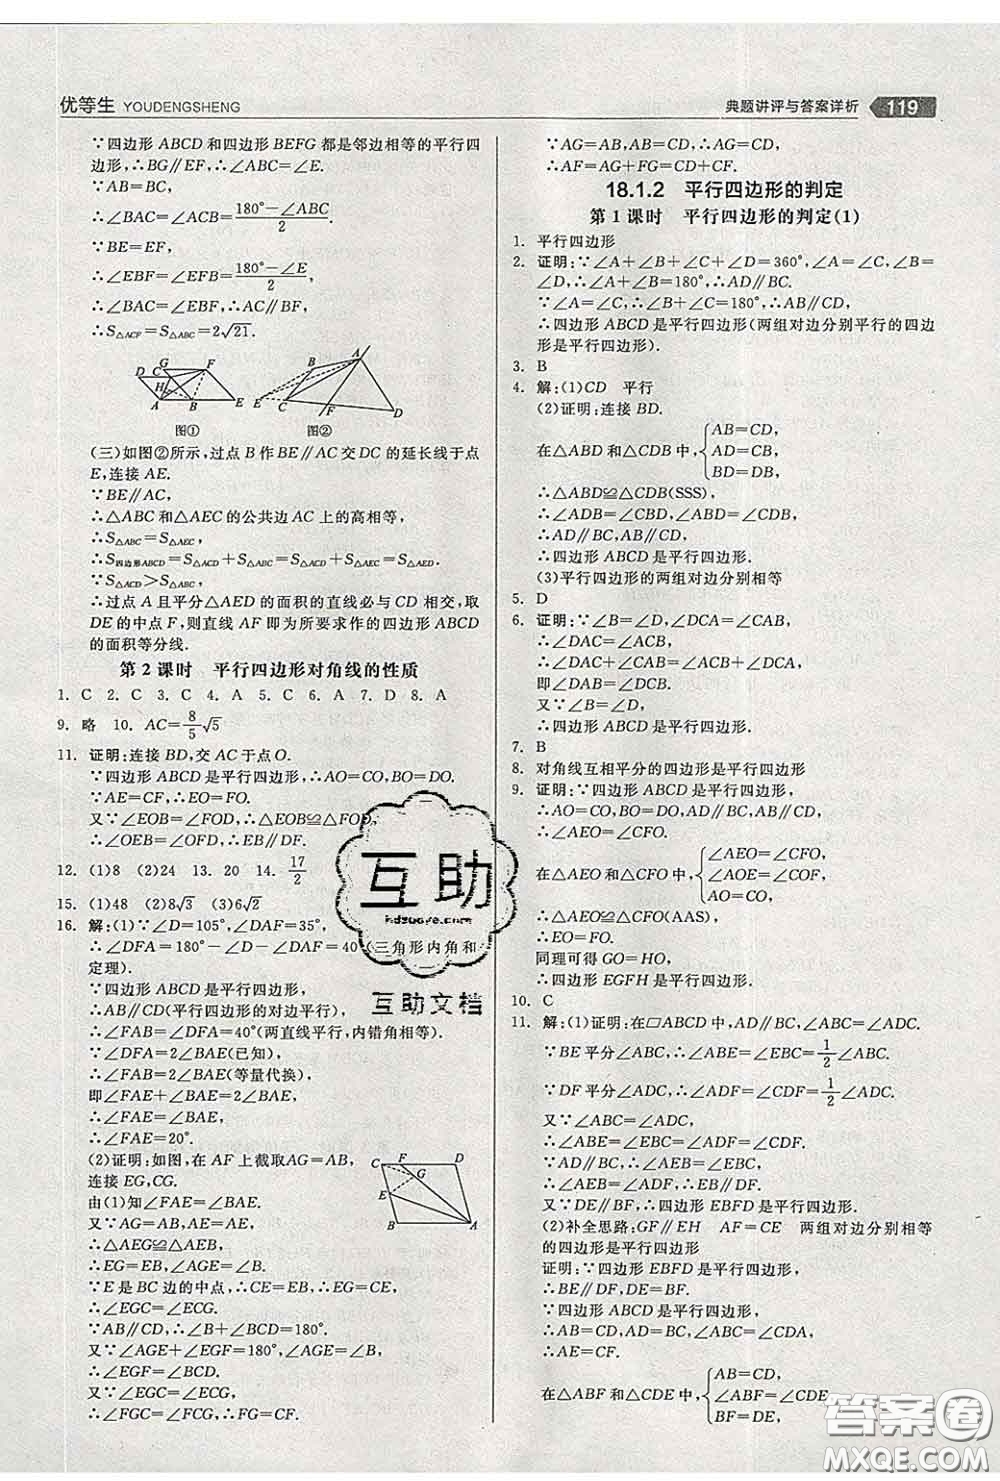 优等生 YOUDENGSHENG
典题讲评与答案详析 119
∵四边形 ABCD 和四边形 BEFG 都是邻边相等的平行四
边形,∴BG∥EF,∴∠ABC=∠E.
∵AB=BC,
∴∠BAC=∠ACB=(180°-∠ABC)/2.
∵BE=EF,
∴∠EBF=∠EFB=(180°-∠E)/2
∴∠BAC=∠EBF,∴AC∥BF,
∴S△ACF=S△ABC=2√21.
D C G F A B E
图①
B A E C F D
图②
(三)如图②所示,过点 B 作BE∥AC 交 DC 的延长线于点
E,连接 AE.
∵BE∥AC,
∴△ABC 和△AEC 的公共边 AC 上的高相等,
∴S△ABC=S△AEC,
∴S四边形ABCD=S△ACD+S△ABC=S△ACD+S△AEC=S△AED.
∵S△ACD>S△ABC,
∴过点 A 且平分△AED 的面积的直线必与 CD 相交,取
DE 的中点 F,则直线 AF 即为所要求作的四边形 ABCD
的面积等分线.
第 2 课时 平行四边形对角线的性质
1. C 2. C 3. C 4. A 5. C 6. A 7. D 8. A
9. 略 10. AC=8/5√5
11. 证明:连接 BD,交 AC 于点 O.
∵四边形 ABCD 是平行四边形,∴AO=CO,BO=DO.
∵AE=CF,∴EO=FO.
又∵∠EOB=∠FOD,∴△EOB≌△FOD,
∴∠OEB=∠OFD,∴BE∥DF.
12. (1)8 (2)24 13. 20 14. 17/2
15. (1)48 (2)8√3 (3)6√2
16. 解:(1)∵∠D=105°,∠DAF=35°,
∴∠DFA=180°-∠D-∠DAF=40°(三角形内角和
定理).
∵四边形 ABCD 是平行四边形,
∴AB∥CD(平行四边形的对边平行),
∴∠FAB=∠DFA=40°(两直线平行,内错角相等).
∵∠DFA=2∠BAE(已知),
∴∠FAB=2∠BAE(等量代换),
即∠FAE+∠BAE=2∠BAE,
∴∠FAE=∠BAE,
∴∠FAE=20°.
(2)证明:如图,在 AF 上截取AG=AB,
连接 EG,CG.
由(1)知∠FAE=∠BAE.
又∵AG=AB,AE=AE,
∴△AEG≌△AEB,
∴EG=EB,∠AGE=∠B.
∵E 是 BC 边的中点,∴CE=EB,∴EG=CE,
∴∠EGC=∠ECG.
∵AB∥CD,∴∠B+∠BCD=180°.
又∵∠AGE+∠EGF=180°,∠AGE=∠B,
∴∠EGF=∠BCD.
又∵∠EGC=∠ECG,
∴∠FGC=∠FCG,∴FG=FC.
C F D G E B A
又∵AG=AB,AB=CD,∴AG=CD,
∴AF=AG+FG=CD+CF.
18.1.2 平行四边形的判定
第 1 课时 平行四边形的判定(1)
1. 平行四边形
2. 证明:∵∠A+∠B+∠C+∠D=360°,∠A=∠C,∠B=
∠D,∴∠A+∠B=180°,∴AD∥BC.
∵∠A=∠C,∴∠B+∠C=180°,∴AB∥CD,
∴四边形 ABCD 是平行四边形(两组对边分别平行的四边
形是平行四边形).
3. B
4. 解:(1)CD 平行
(2)证明:连接 BD.
在△ABD 和△CDB 中,{AB=CD,
AD=CB,
BD=DB,
∴△ABD≌△CDB(SSS),
∴∠ADB=∠CBD,∠ABD=∠CDB,
∴AD∥BC,AB∥CD,
∴四边形 ABCD 是平行四边形.
(3)平行四边形的两组对边分别相等
5. D
6. 证明:∵∠B=∠D,∠1=∠2,
∴∠DAC=∠ACB,
∴∠DAC+∠2=∠ACB+∠1,
即∠DAB=∠DCB.
又∵∠B=∠D,
∴四边形 ABCD 是平行四边形.
7. B
8. 对角线互相平分的四边形是平行四边形
9. 证明:∵四边形 ABCD 是平行四边形,
∴AO=CO,BO=DO,AD∥BC,AB∥CD,
∴∠AEO=∠CFO.
在△AEO 和△CFO 中,{∠AEO=∠CFO,
∠AOE=∠COF,
AO=CO,
∴△AEO≌△CFO(AAS),∴EO=FO.
同理可得 GO=HO,
∴四边形 EGFH 是平行四边形.
10. C
11. 解:(1)证明:在▱ABCD 中,AD∥BC,∠ABC=∠ADC.
∵BE 平分∠ABC,∴∠ABE=∠EBC=1/2∠ABC.
∵DF 平分∠ADC,∴∠ADF=∠CDF=1/2∠ADC.
又∵∠ABC=∠ADC,
∴∠ABE=∠EBC=∠ADF=∠CDF.
∵AD∥BC,∴∠AEB=∠EBC,
∴∠AEB=∠ADF,∴EB∥DF.
又∵DE∥BF,∴四边形 EBFD 是平行四边形.
(2)补全思路:GF∥EH AF=CE 两组对边分别相等
的四边形是平行四边形
证明:∵四边形 EBFD 是平行四边形,
∴BE∥DF,DE=BF.
∵四边形 ABCD 是平行四边形,
∴AB=CD,∠ABC=∠CDA,AD=BC,AD∥BC,
∴AE=CF.
在△ABF 和△CDE 中,{AB=CD,
∠ABF=∠CDE,
BF=DE,
互助
hdzuoye.com
互助文档
答案圈
MXQE.COM